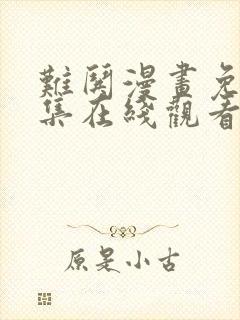 難鬩漫畫免
集在綫觀看
原是小古